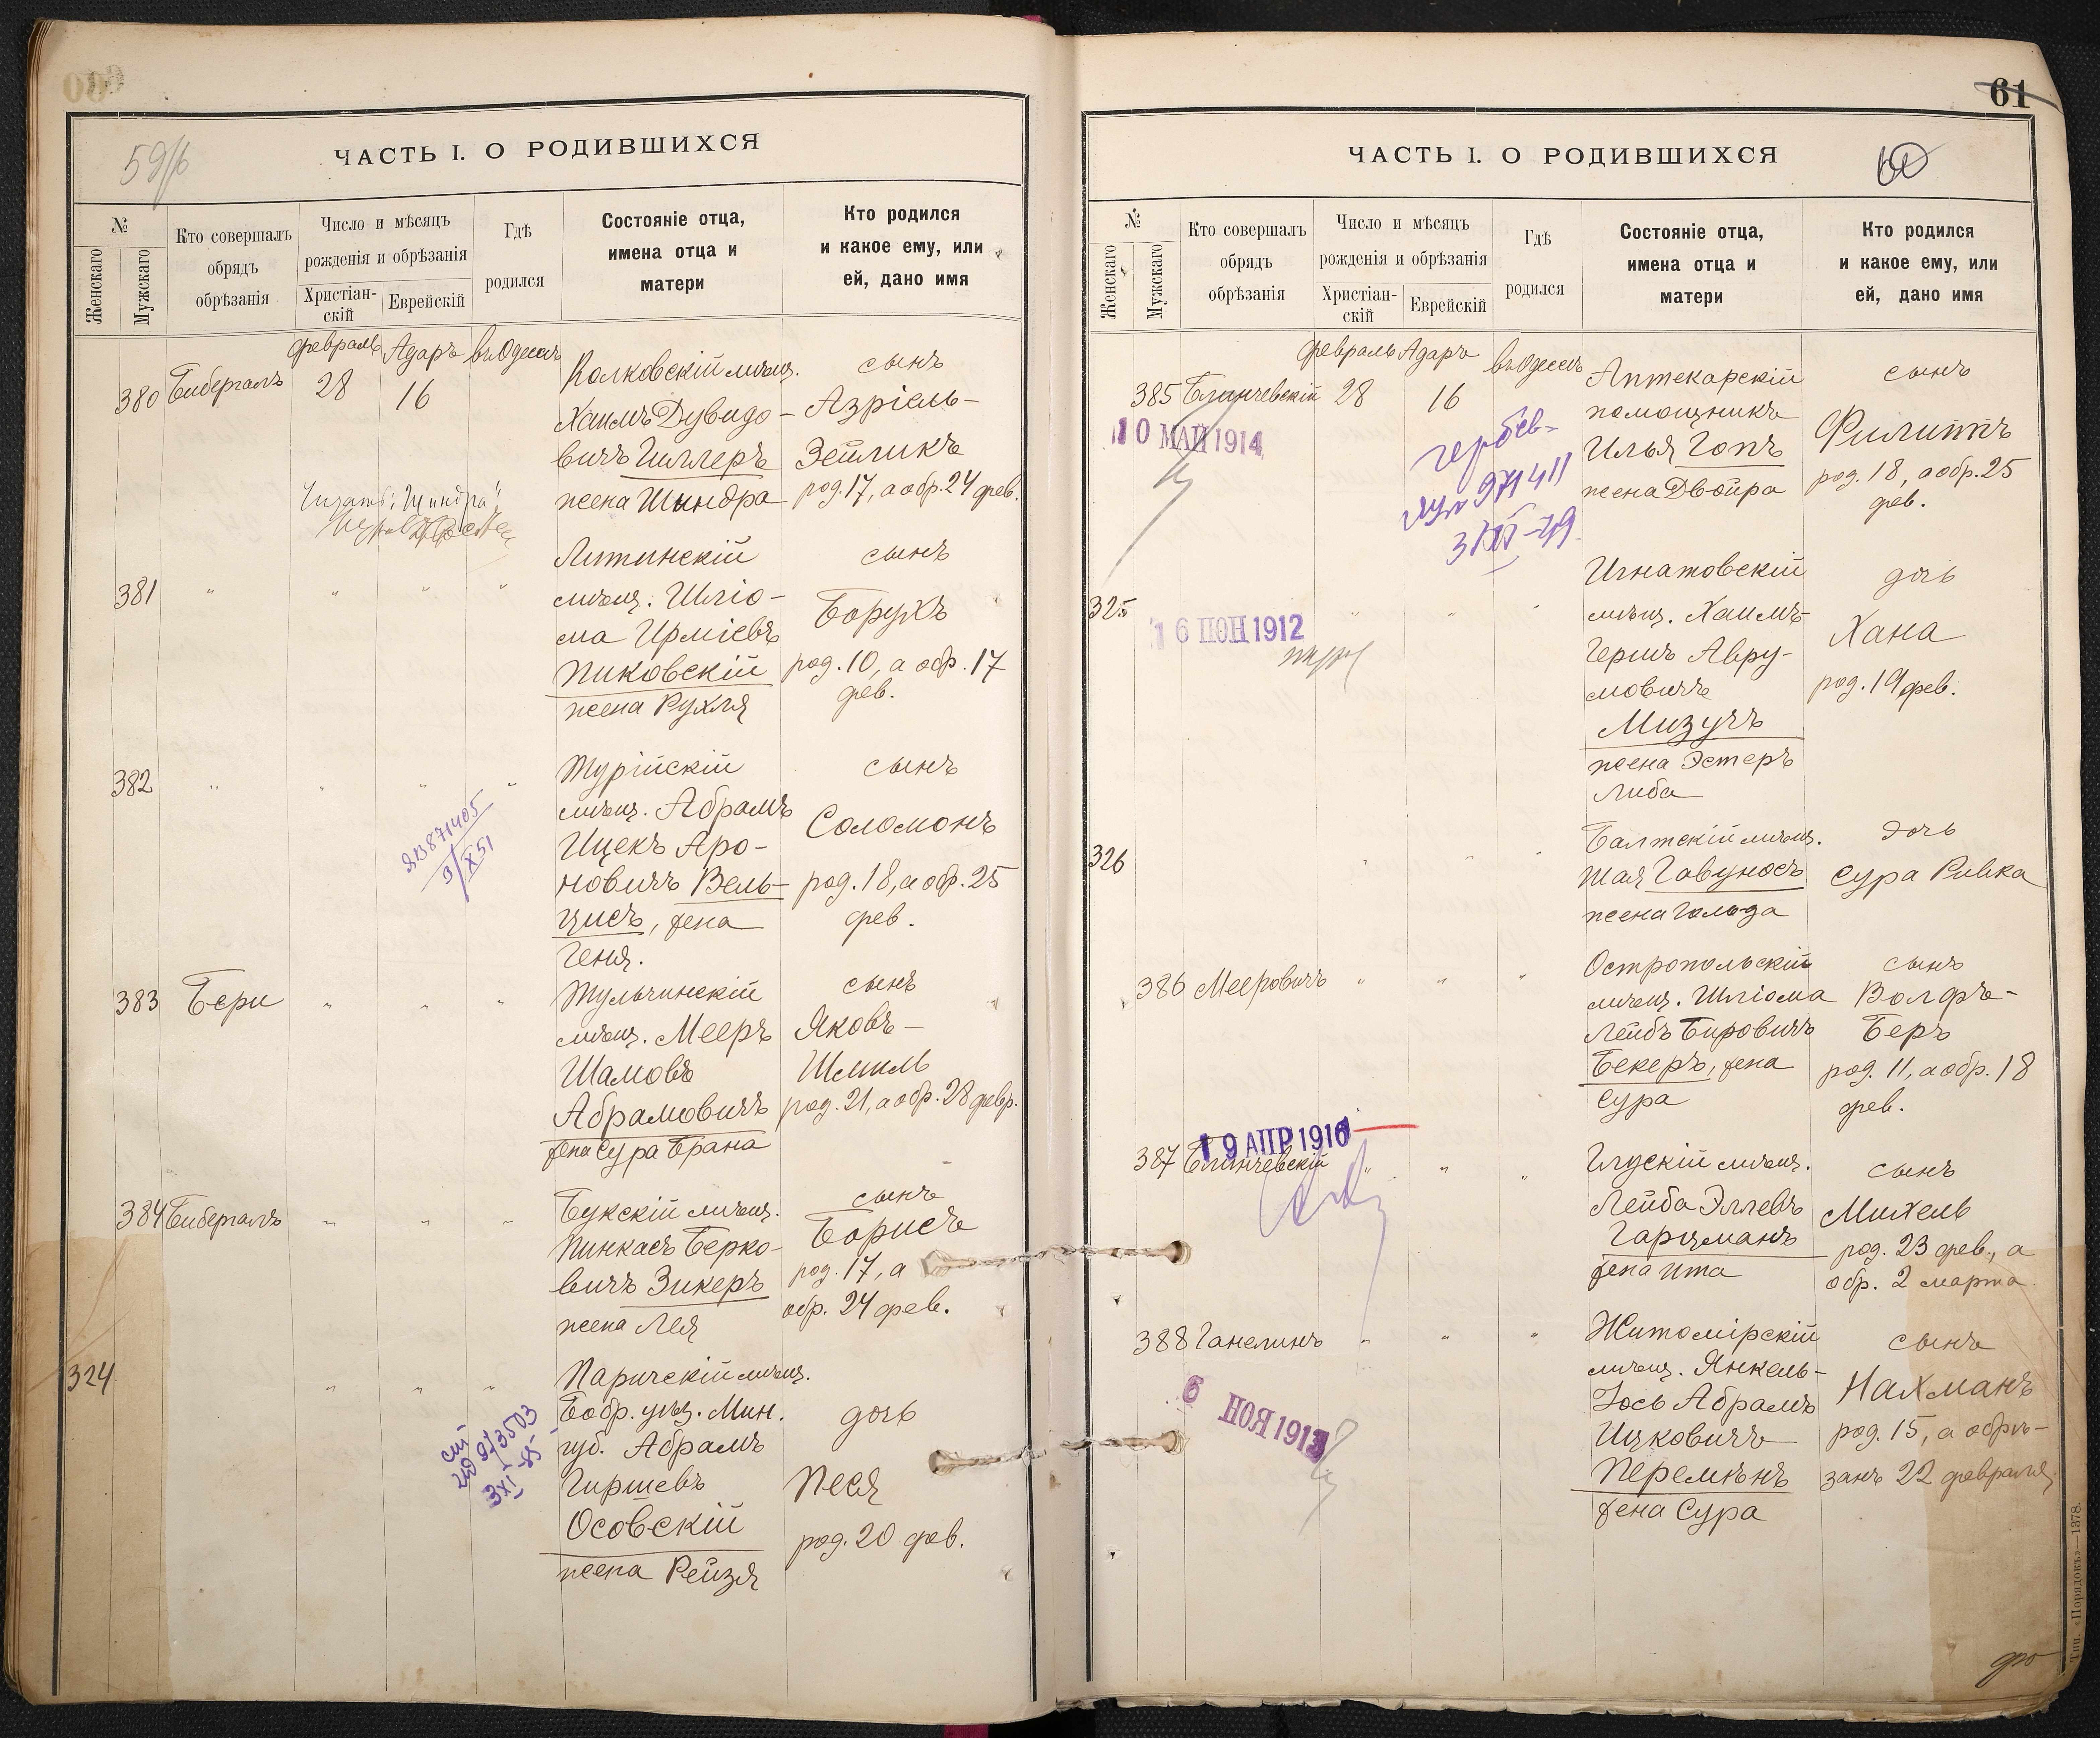 59/б
ЧАСТЬ I. О РОДИВШИХСЯ
№
Женскаго
Мужскаго
Кто совершалъ
обрядъ
обрѣзанія
Число и мѣсяцъ
рожденія и обрѣзанія
Христіан-
скій
Еврейскій
Гдѣ
родился
Состояніе отца,
имена отца и
матери
Кто родился
и какое ему, или
ей, дано имя
380 Бибергалъ
февраль Адаръ въ Одессѣ
28 16
Колковскій мѣщ.
Хаимъ Дувидо-
вичъ Гиллеръ
жена Шындра
сынъ
Азріель-
Зейликъ
род. 17, а обр. 24 фев.
381 " " " "
Литинскій
мѣщ. Шліо-
ма Ирміевъ
Пиковскій
жена Рухля
сынъ
Борухъ
род. 10, а обр. 17
фев.
382 " " " "
ЯВ 871405
Х 51
Турійскій
мѣщ. Абрамъ
Ицекъ Аро-
новичъ Вель-
цисъ, жена
Геня.
сынъ
Соломонъ
род. 18, а обр. 25
фев.
383 Бери " " "
Тульчинскій
мѣщ. Мееръ
Шамовъ
Абрамовичъ
жена Сура Брана
сынъ
Яковъ-
Шмиль
род. 21, а обр. 28 февр.
384 Бибергалъ " " "
Букскій мѣщ.
Пинкасъ Берко-
вичъ Зикеръ
жена Лея
сынъ
Борисъ
род. 17, а
обр. 24 фев.
324 " " "
973503
3 XI-85
Паричскій мѣщ.
Бобр. уѣз. Мин.
губ. Абрамъ
Гиршевъ
Осовскій
жена Рейзя
дочь
Песя
род. 20 фев.
61
ЧАСТЬ I. О РОДИВШИХСЯ
60
№
Женскаго
Мужскаго
Кто совершалъ
обрядъ
обрѣзанія
Число и мѣсяцъ
рожденія и обрѣзанія
Христіан-
скій
Еврейскій
Гдѣ
родился
Состояніе отца,
имена отца и
матери
Кто родился
и какое ему, или
ей, дано имя
385 Блинчевскій
февраль Адаръ въ Одессѣ
28 16
10 МАЙ 1914
971411
Аптекарскій
помощникъ
Илья Гопъ
жена Двойра
сынъ
Филиппъ
род. 18, а обр. 25
фев.
325 " " "
16 ІЮН 1912
Игнатовскій
мѣщ. Хаимъ-
Гершъ Авру-
мовичъ
Мизучъ
жена Эстеръ
Либа
дочь
Хана
род. 19 фев.
326 " " "
Балтскій мѣщ.
Шая Гавуносъ
жена Гольда
дочь
Сура Ривка
386 Мееровичъ " " "
Остропольскій
мѣщ. Шліома
Лейбъ Бировичъ
Бекеръ, жена
Сура
сынъ
Волфъ-
Беръ
род. 11, а обр. 18
фев.
19 АПР 1916
387 Блинчевскій " " "
Глускій мѣщ.
Лейба Эллевъ
Гарцманъ
жена Ита
сынъ
Михель
род. 23 фев., а
обр. 2 марта
388 Ганелинъ " " "
6 НОЯ 1913
Житомірскій
мѣщ. Янкель-
Іось Абрамъ
Ицковичъ
Перемѣнъ
жена Сура
сынъ
Нахманъ
род. 15, а обрѣ-
занъ 22 февраля
Тип. «Порядокъ»—1378.